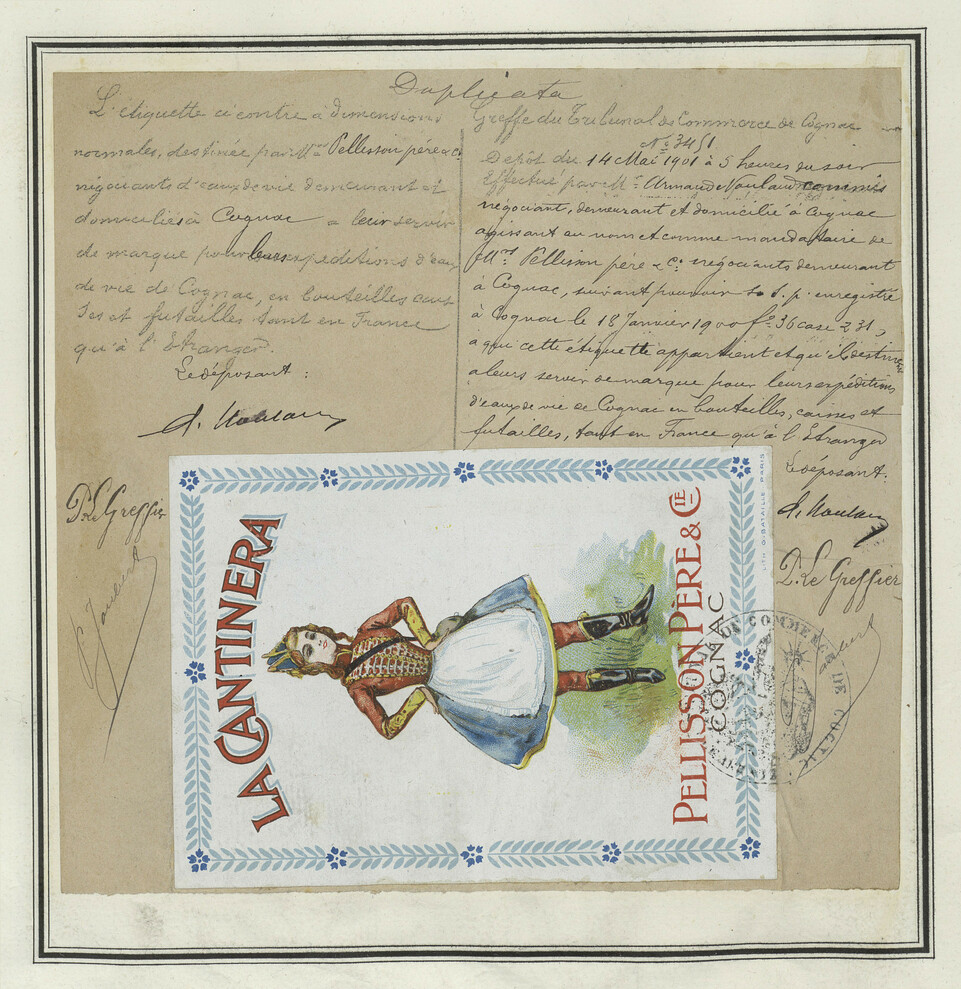 Duplicata
L'étiquette ci contre à dimensions
normales, destinée par Mrs Pellisson père & Cie
négociants d'eaux de vie demeurant et
domiciliés à Cognac à leur servir
de marque pour leurs expéditions d'eaux
de vie de Cognac, en bouteilles, cais
ses et futailles, tant en France
qu'à l'Étranger.
Le déposant :
P. Le Greffier
Greffe du Tribunal de Commerce de Cognac
No 3451
Dépôt du 14 Mai 1901 à 5 heures du soir
Effectué par Mr Armand Noulaud commis
négociant, demeurant et domicilié à Cognac
agissant au nom et comme mandataire de
Mrs Pellisson père & Cie négociants demeurant
à Cognac, suivant pouvoir s. s. p. enregistré
à Cognac le 18 Janvier 1900 fo 36 case 231,
à qui cette étiquette appartient et qu'ils destinent
à leurs servir de marque pour leurs expéditions
d'eaux de vie de Cognac en bouteilles, caisses et
futailles, tant en France qu'à l'Étranger
Le déposant.
P. Le Greffier
LA CANTINERA
PELLISSON PÈRE & CIE
COGNAC
LITH. G. BATAILLE PARIS